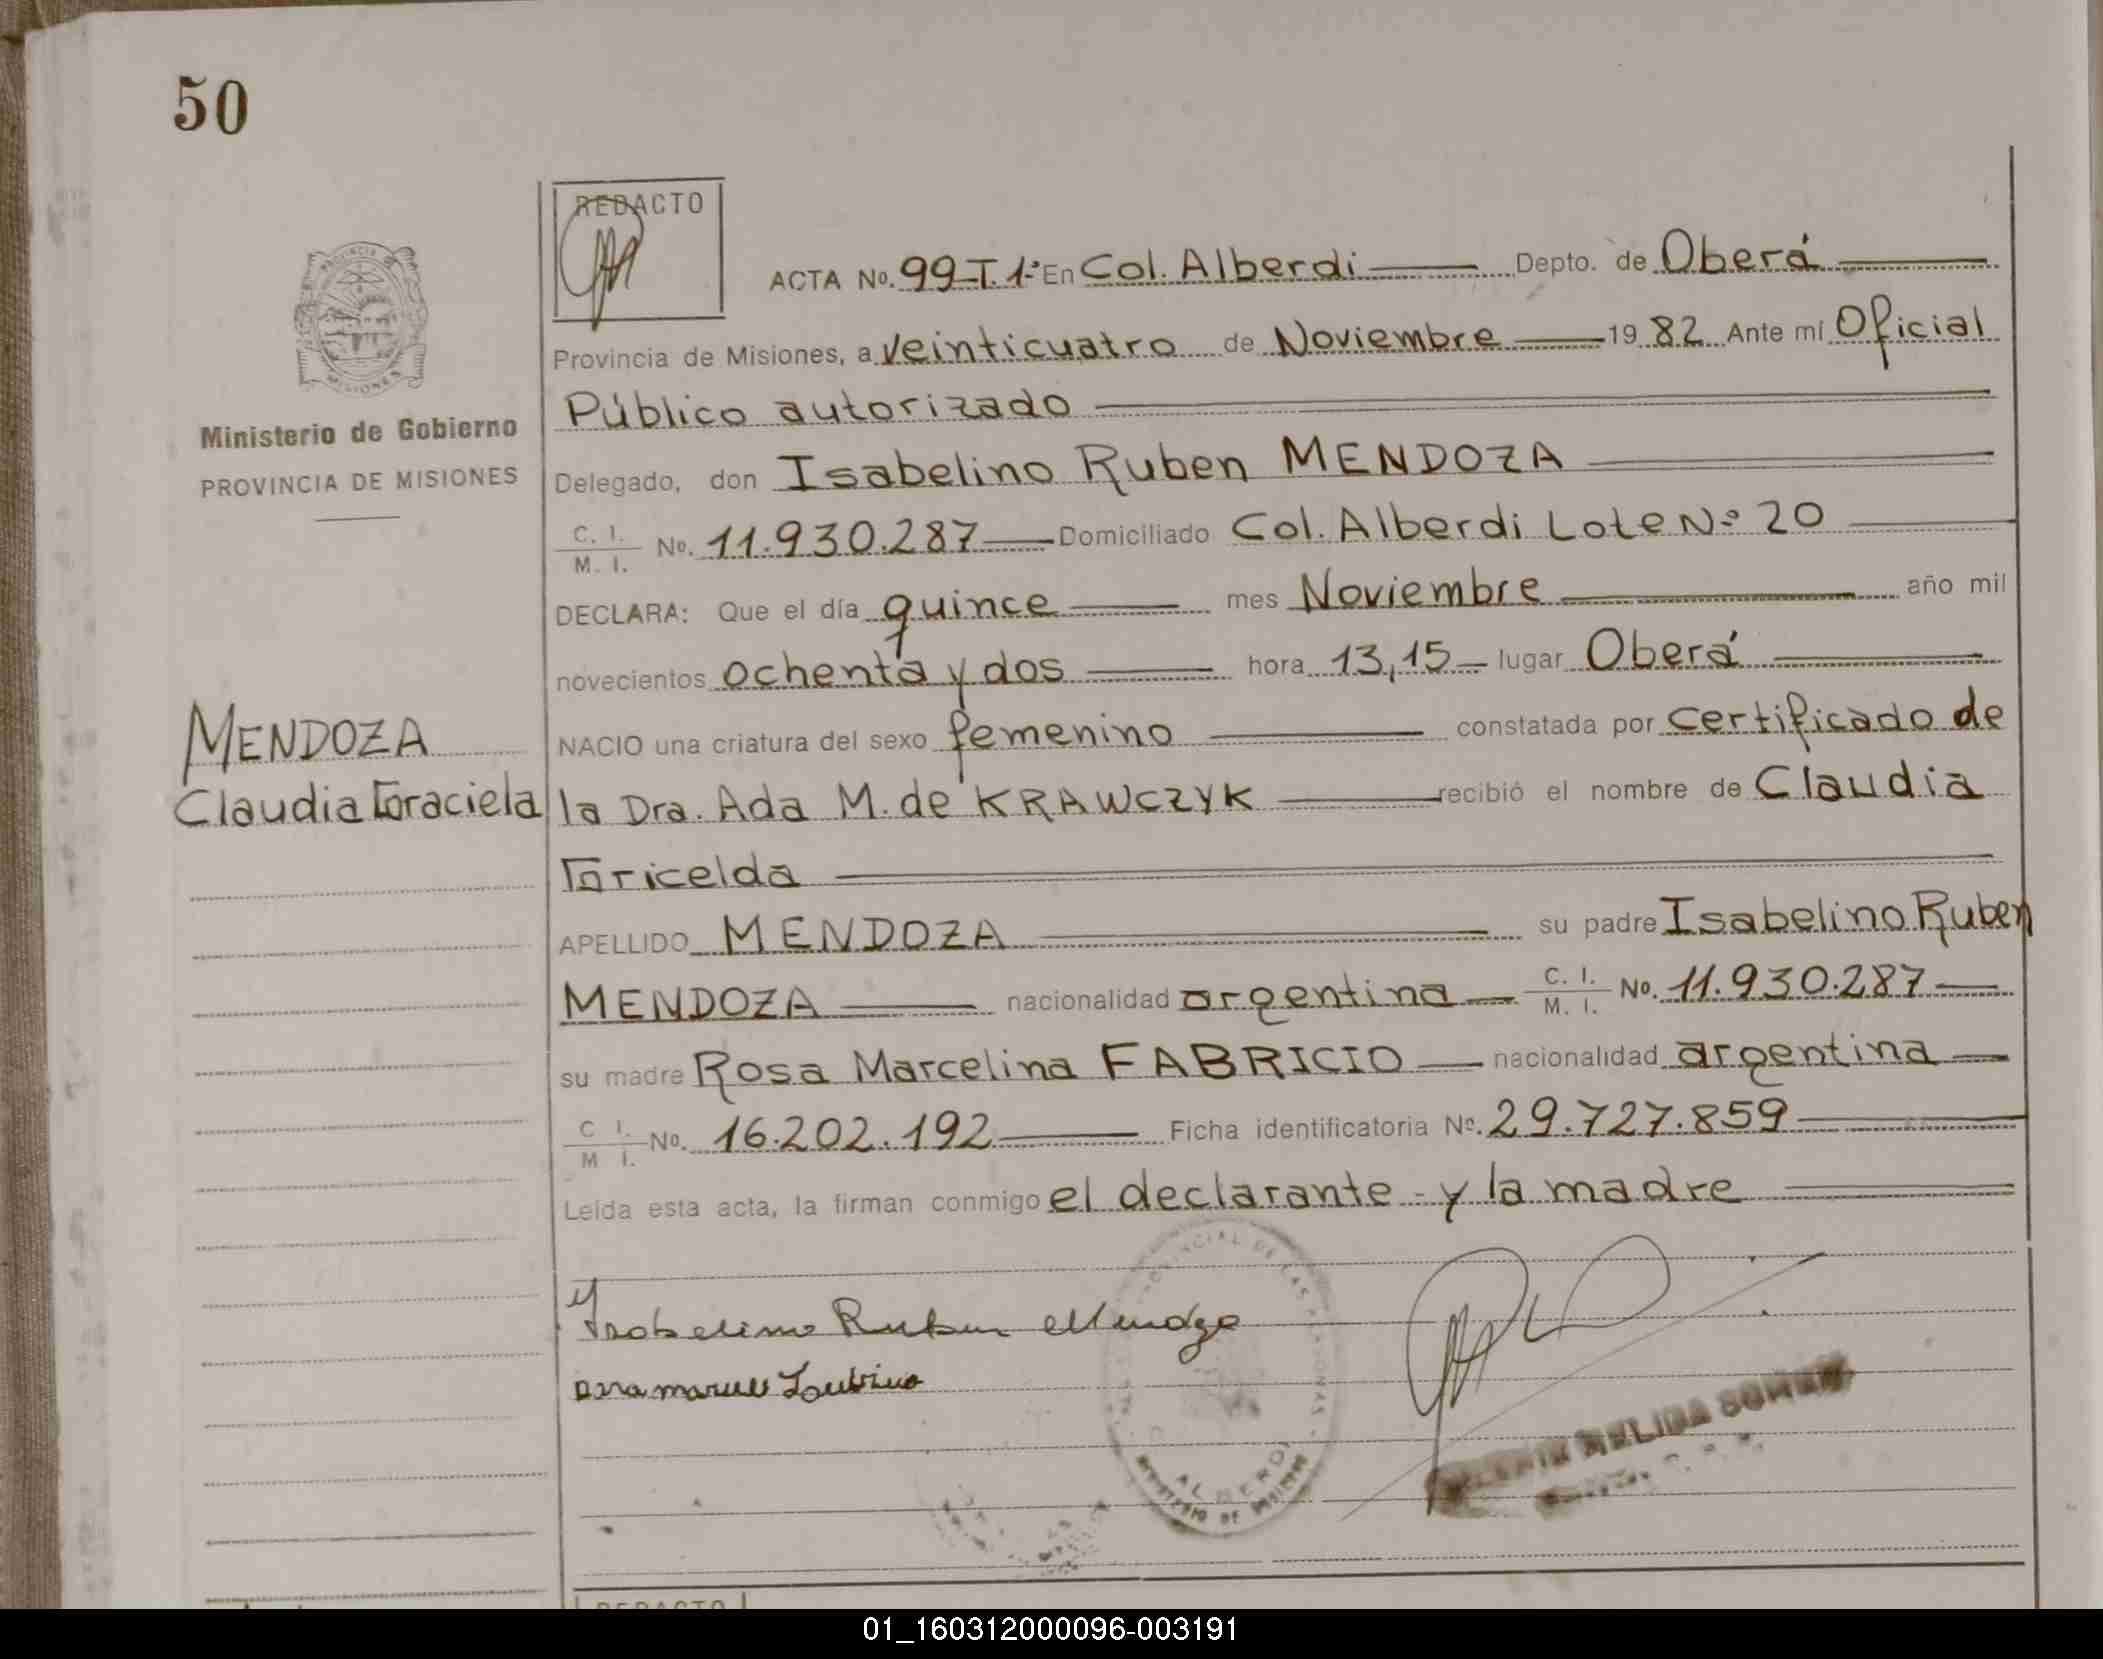 50
REDACTO
ACTA No. 99-T.1º En Col. Alberdi Depto. de Oberá
Provincia de Misiones, a veinticuatro de Noviembre 1982 Ante mí Oficial
Público autorizado
Ministerio de Gobierno
PROVINCIA DE MISIONES
Delegado, don Isabelino Ruben MENDOZA
C. I.
M. I. No. 11.930.287 Domiciliado Col. Alberdi Lote Nº 20
DECLARA: Que el día quince mes Noviembre año mil
novecientos ochenta y dos hora 13,15 lugar Oberá
MENDOZA
Claudia Graciela
NACIO una criatura del sexo femenino constatada por certificado de
la Dra. Ada M. de KRAWCZYK recibió el nombre de Claudia
Gricelda
APELLIDO MENDOZA su padre Isabelino Ruben
MENDOZA nacionalidad argentina C. I. M. I. No. 11.930.287
su madre Rosa Marcelina FABRICIO nacionalidad argentina
C I. M I. No. 16.202.192 Ficha identificatoria No. 29.727.859
Leída esta acta, la firman conmigo el declarante y la madre
Isabelino Ruben Mendoza
ALBERDI
MINISTERIO DE GOBIERNO
REDACTO
01_160312000096-003191